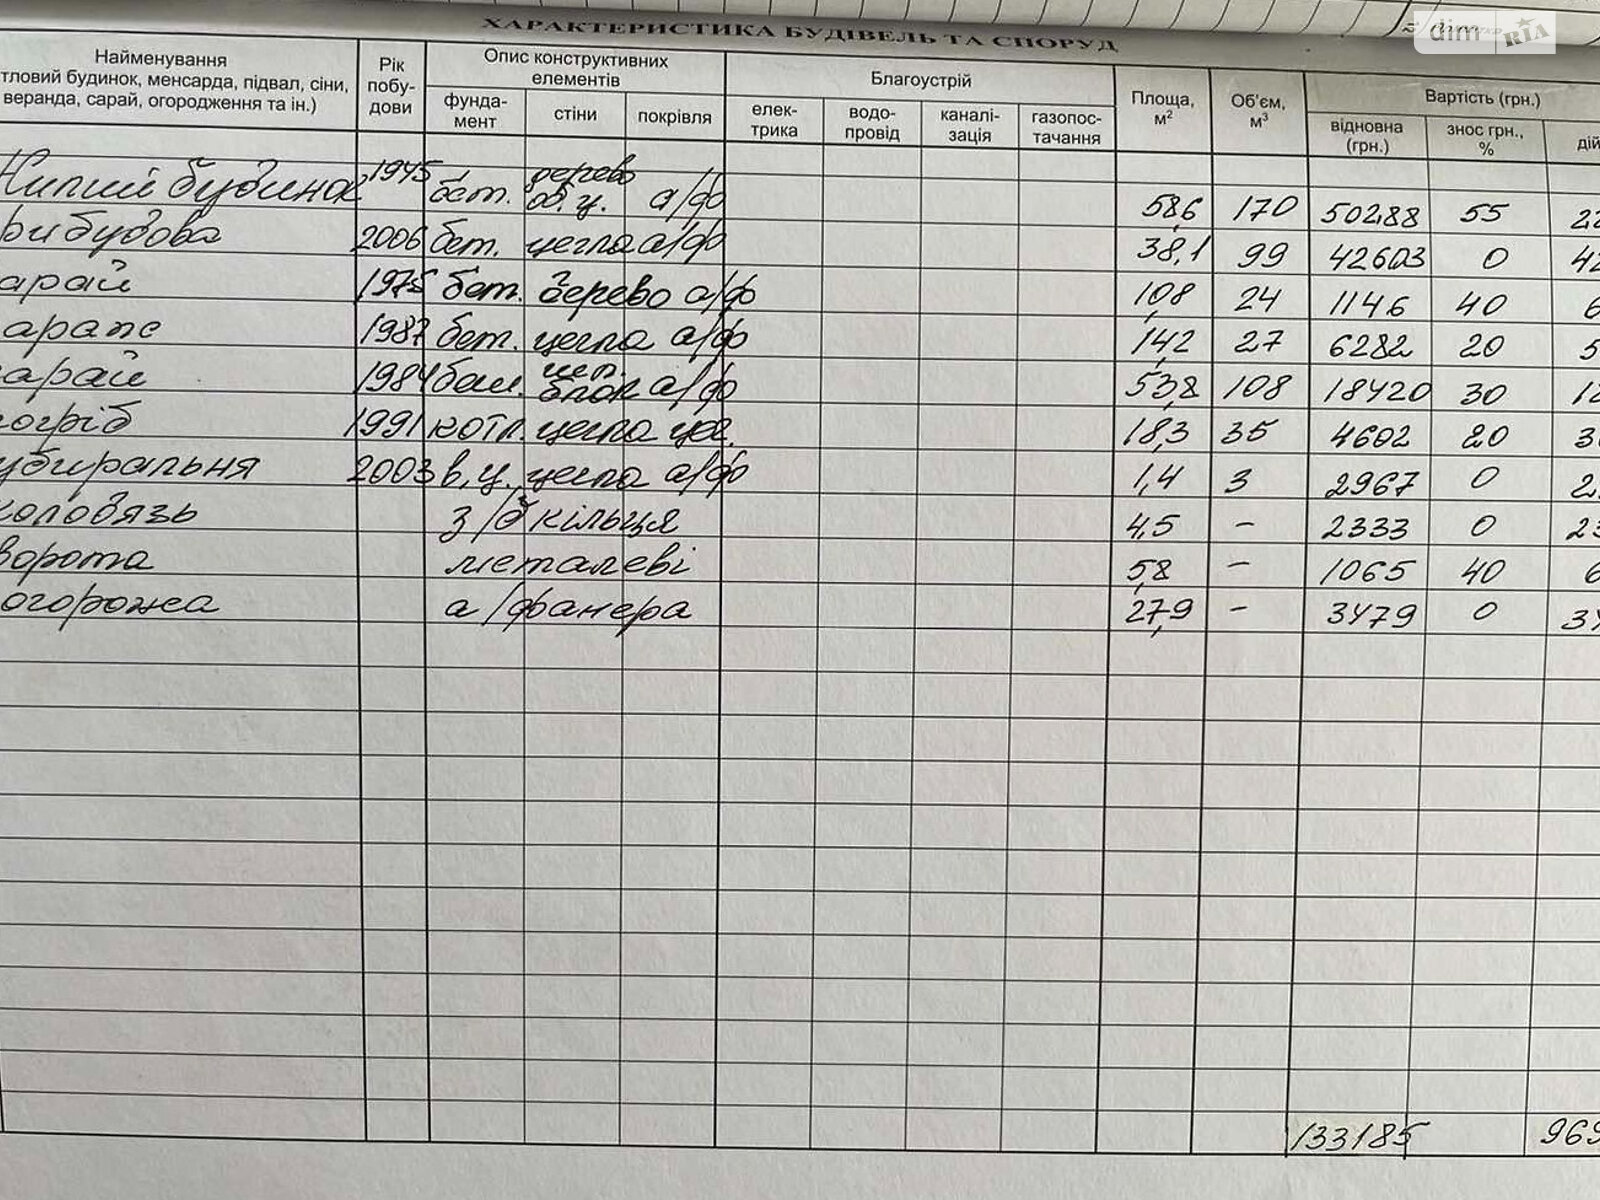 ХАРАКТЕРИСТИКА БУДІВЕЛЬ ТА СПОРУД
dim RIA
Найменування
тловий будинок, менсарда, підвал, сіни,
веранда, сарай, огородження та ін.)
Рік
побу-
дови
Опис конструктивних
елементів
фунда-
мент
стіни
покрівля
Благоустрій
елек-
трика
водо-
провід
каналі-
зація
газопос-
тачання
Площа,
м²
Об'єм,
м³
Вартість (грн.)
відновна
(грн.)
знос грн.,
%
дій
Жилий будинок 1945 бет. дерево об. ц. а/ф 58,6 170 50288 55 22
рибудова 2006 бет. цегла а/ф 38,1 99 42603 0 42
арай 1975 бет. дерево а/ф 10,8 24 1146 40 6
араж 1987 бет. цегла а/ф 14,2 27 6282 20 5
арай 1984 бет. шл. блок а/ф 53,8 108 18420 30 12
огріб 1991 котл. цегла цег. 18,3 35 4602 20 3
убиральня 2003 в.ц. цегла а/ф 1,4 3 2967 0 2
колодязь з/б кільця 4,5 - 2333 0 23
ворота металеві 5,8 - 1065 40 6
огорожа а/фанера 27,9 - 3479 0 34
133185 969